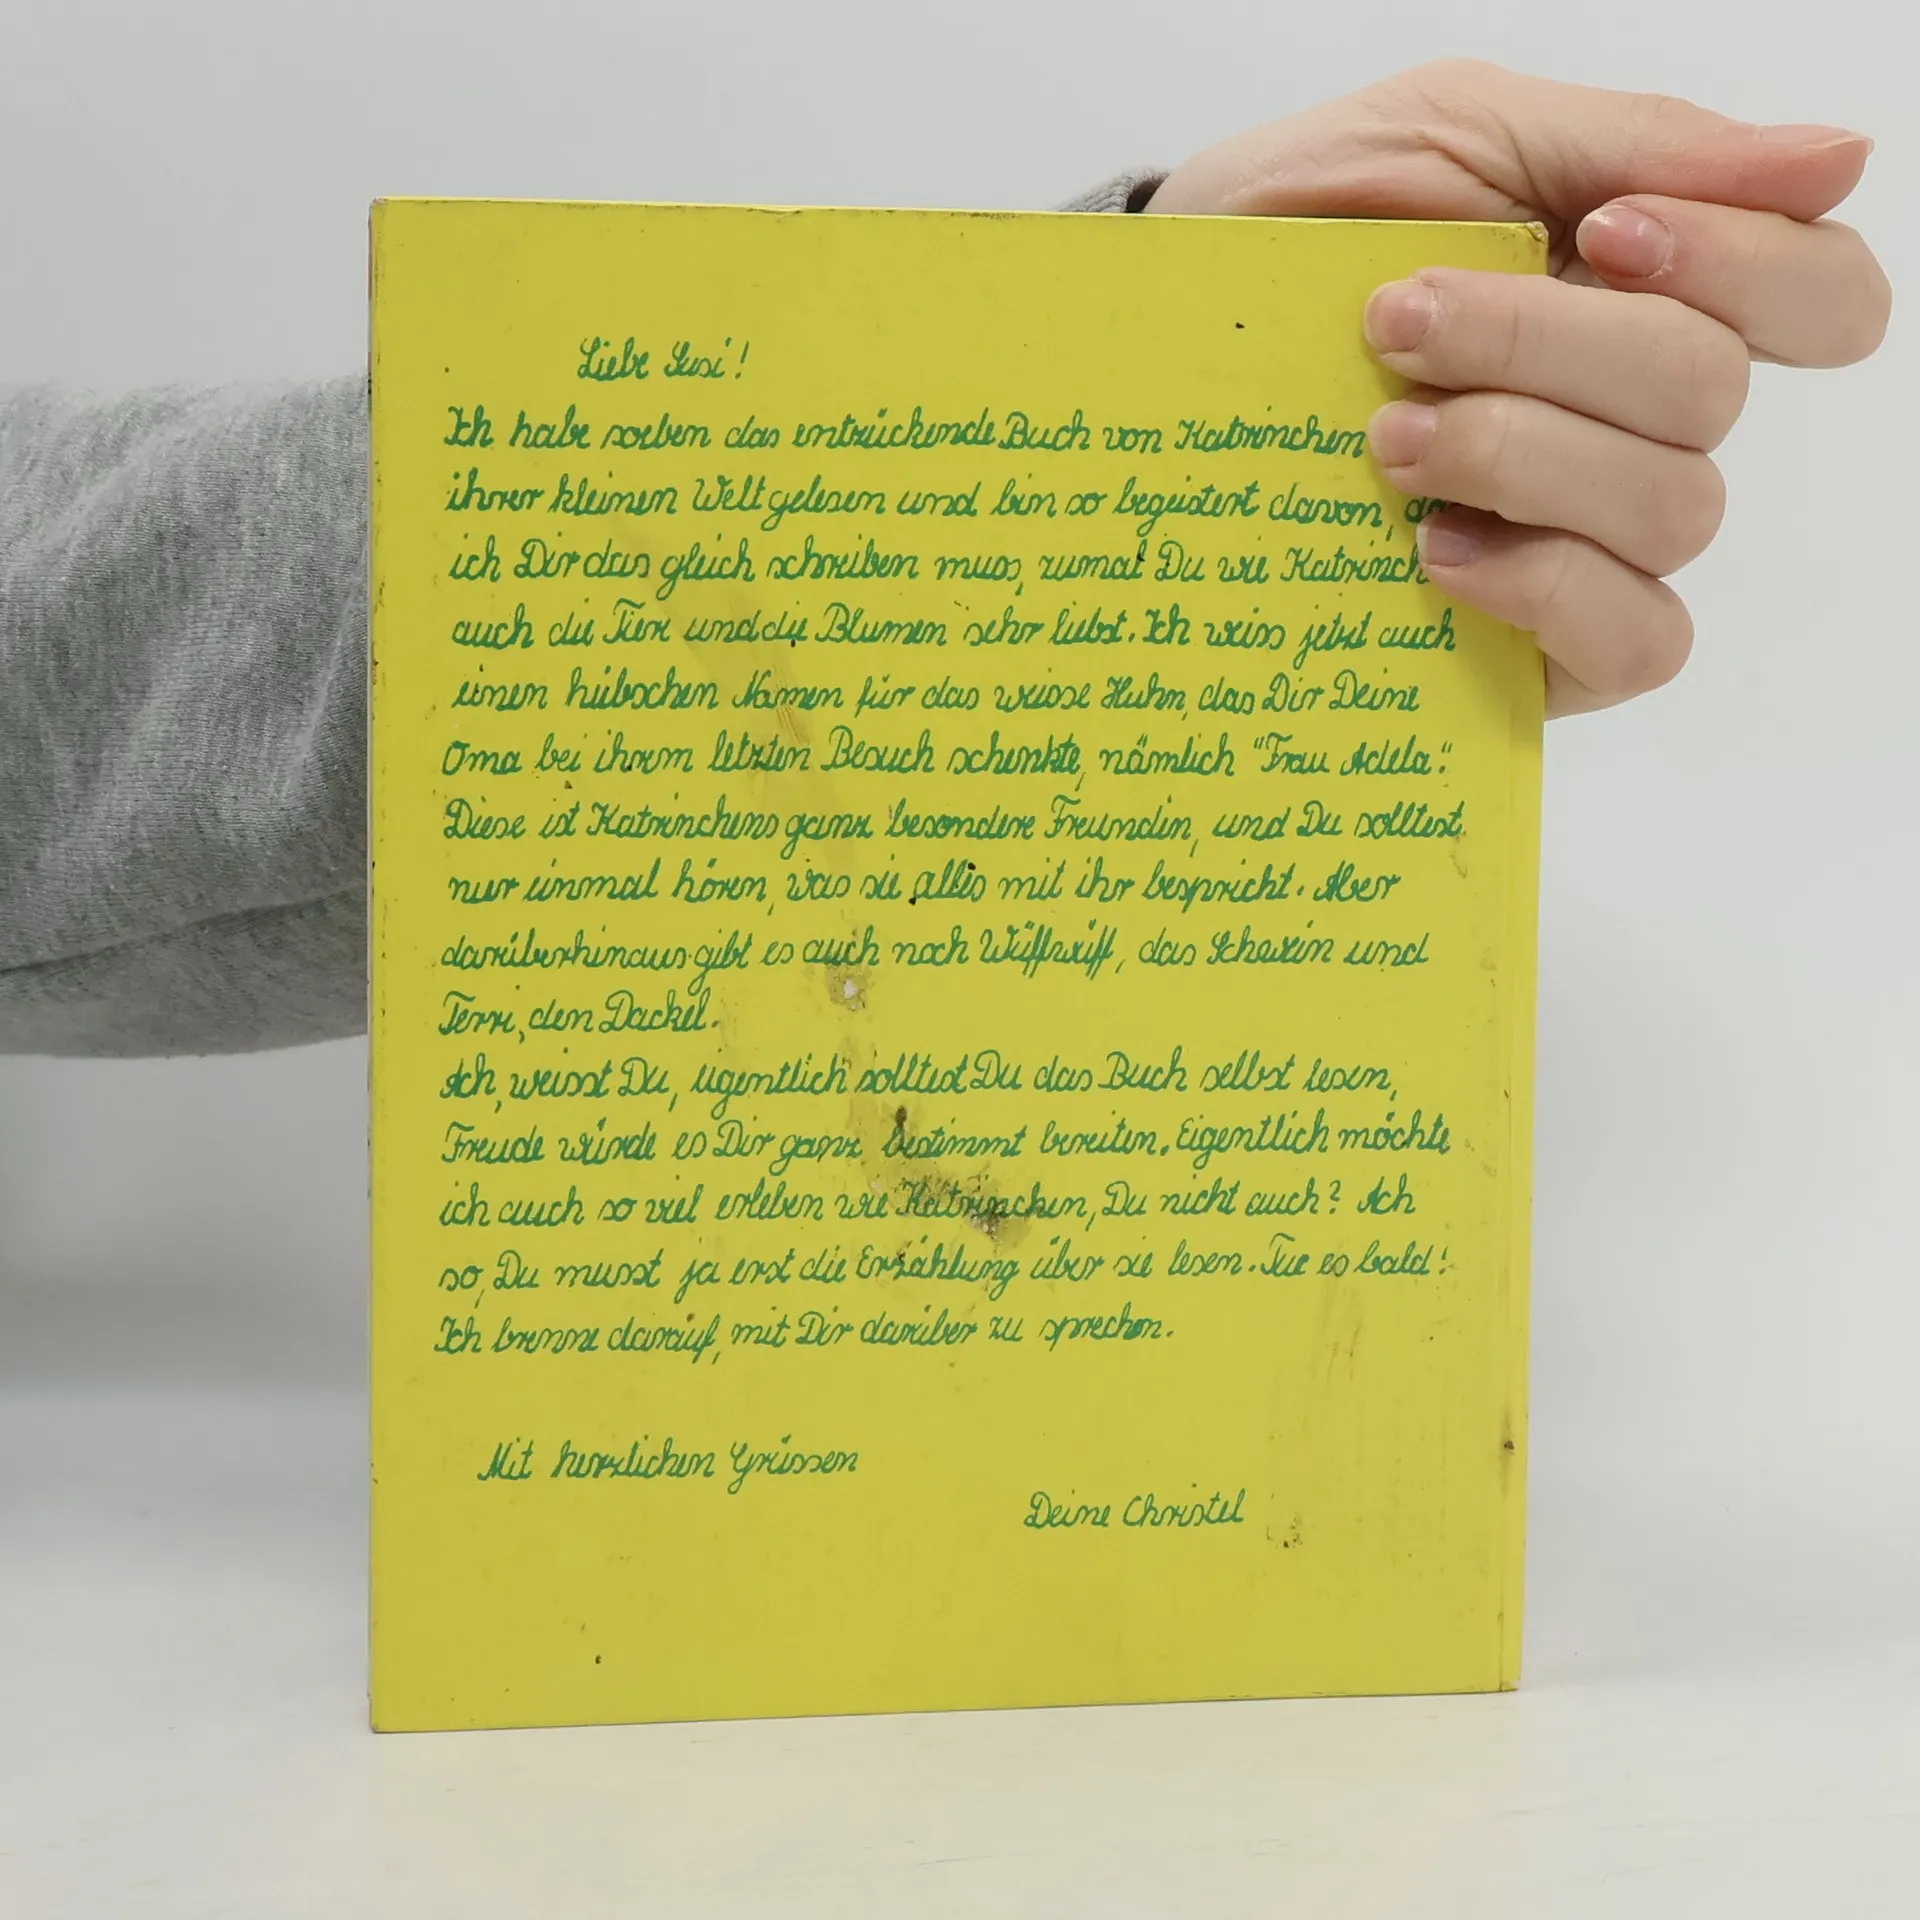 Liebe Susi!
Ich habe soeben das entzückende Buch von Katrinchen
ihrer kleinen Welt gelesen und bin so begeistert davon,
ich Dir das gleich schreiben muss, zumal Du wie Katrinch
auch die Tiere und die Blumen sehr liebst. Ich weiss jetzt auch
einen hübschen Namen für das weisse Huhn, das Dir Deine
Oma bei ihrem letzten Besuch schenkte, nämlich "Frau Adela".
Diese ist Katrinchens ganz besondere Freundin, und Du solltest
nur einmal hören, was sie alles mit ihr bespricht. Aber
darüberhinaus gibt es auch noch Wüffwüff, das Schwein und
Terri, den Dackel.
Ach, weisst Du, eigentlich solltest Du das Buch selbst lesen,
Freude würde es Dir ganz bestimmt bereiten. Eigentlich möchte
ich auch so viel erleben wie Katrinchen, Du nicht auch? Ach
so, Du musst ja erst die Erzählung über sie lesen. Tue es bald!
Ich brenne darauf, mit Dir darüber zu sprechen.
Mit herzlichen Grüssen
Deine Christel